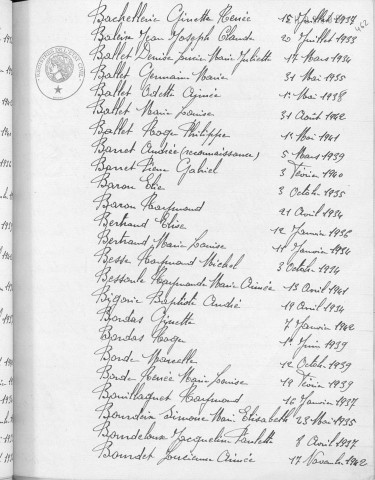 462
Bachellerie Ginette Renée 15 Juillet 1937
Baleix Jean Joseph Claude 20 Juillet 1933
Ballet Denise Marie Juliette 17 Mars 1934
Ballet Germain Marie 31 Mai 1935
Ballet Odette Aimée 1er Mai 1938
Ballet Marie Louise 31 Août 1942
Ballet Roger Philippe 1er Mai 1941
Barret Andrée (reconnaissance) 5 Mars 1939
Barret Pierre Gabriel 3 Février 1940
Baron Elie 3 Octobre 1935
Baron Raymond 21 Avril 1934
Bertrand Elise 12 Janvier 1938
Bertrand Marie Louise 11 Janvier 1934
Besse Raymond Michel 3 Octobre 1934
Bessoule Raymonde Marie Aimée 13 Avril 1941
Bigorie Baptiste André 19 Avril 1934
Bordas Ginette 7 Janvier 1942
Bordas Roger 1er Juin 1939
Borde Marcelle 12 Octobre 1939
Borde Renée Marie Louise 19 Février 1939
Bouillaguet Raymond 16 Janvier 1937
Bourdeix Simone Marie Elisabeth 23 Mai 1935
Bourdeloux Jacqueline Paulette 8 Avril 1937
Bourdet Lucienne Aimée 17 Novembre 1942